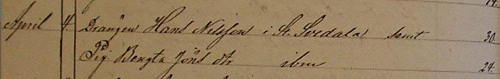 April 4. Drängen Hans Nilsson i St. Svedala samt 30.
Pig. Bengta Jöns dtr ibm 24.